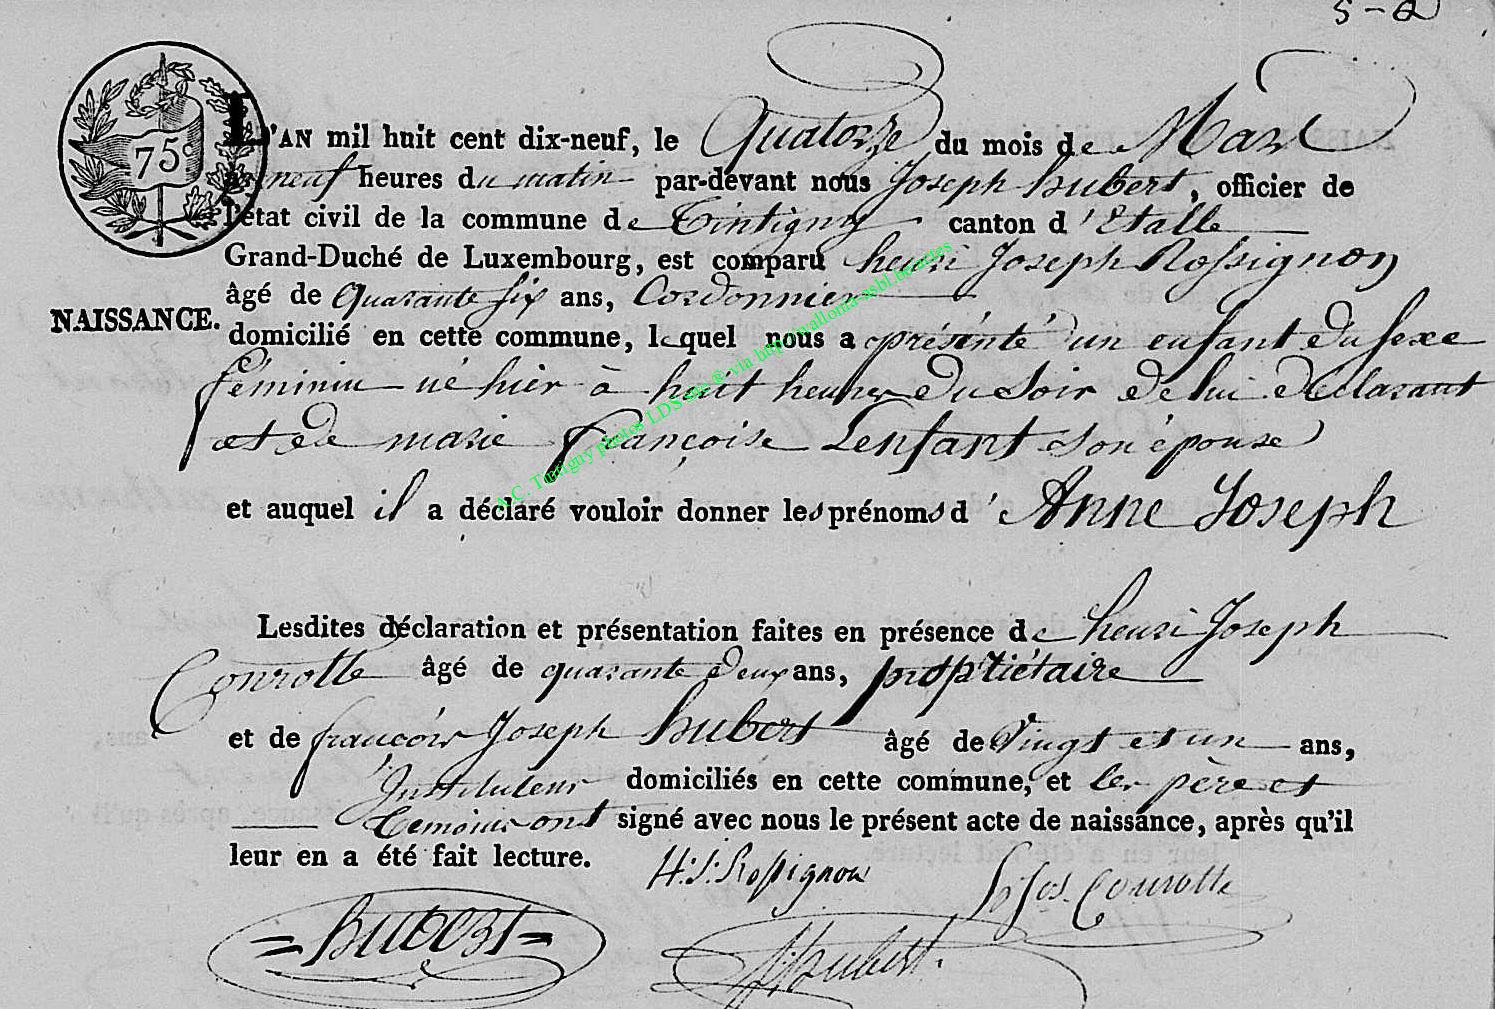 5-Q
75c
L'AN mil huit cent dix-neuf, le Quatorze du mois de Mars
à neuf heures du matin par-devant nous Joseph hubert, officier de
l'état civil de la commune de Tintigny canton d'Etalle
Grand-Duché de Luxembourg, est comparu henri Joseph Rossignon
âgé de quarante six ans, Cordonnier
NAISSANCE.
domicilié en cette commune, lequel nous a présenté un enfant du sexe
féminin né hier à huit heures du soir de lui déclarant
et de marie françoise Lenfant son épouse
et auquel il a déclaré vouloir donner les prénoms d'Anne Joseph
Lesdites déclaration et présentation faites en présence de henri Joseph
Conrotte âgé de quarante deux ans, propriétaire
et de françois Joseph hubert âgé de vingt et un ans,
Instituteur domiciliés en cette commune, et les père et
temoins ont signé avec nous le présent acte de naissance, après qu'il
leur en a été fait lecture. H:J:Rossignon
Jos. Conrotte
= Hubert =
Hubert.
A.C. Tintigny photos LDS via http://wallonia-asbl.be/actes